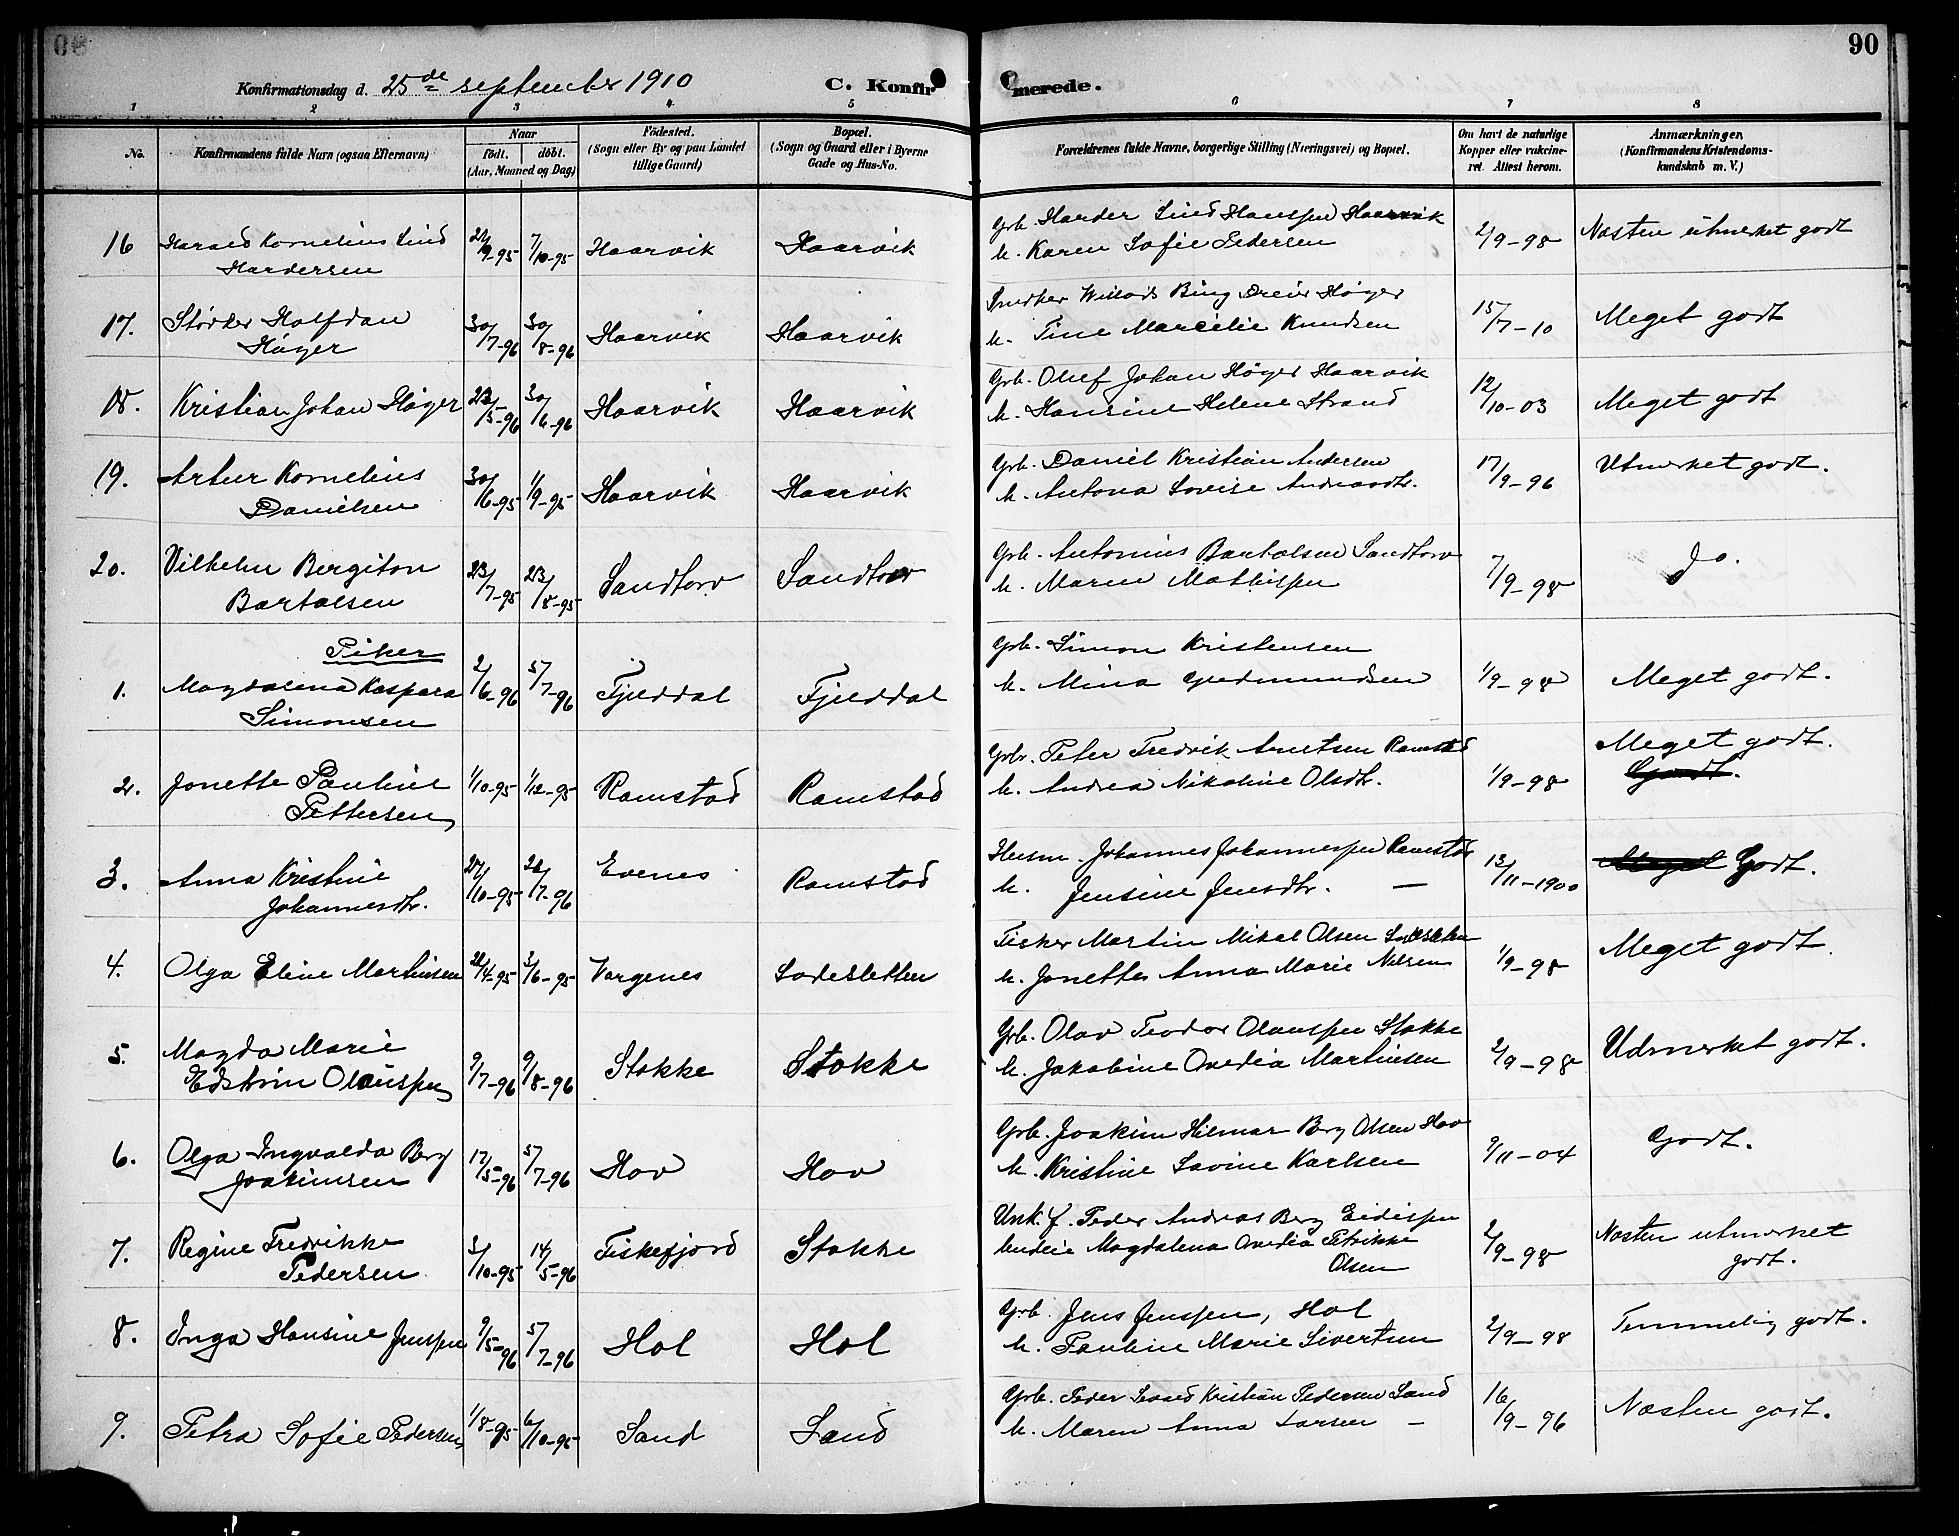 90
Konfirmationsdag d. 25de september 1910 C. Konfirmerede.
1 2 3 4 5 6 7 8
No. Konfirmandens fulde Navn (ogsaa Efternavn) Naar Födested. Bopæl. Forældrenes fulde Navne, borgerlige Stilling (Næringsvei) og Bopæl. Om havt de naturlige Anmærkninger,
födt. döbt. (Sogn eller By og paa Landet (Sogn og Gaard eller i Byerne Kopper eller vakcine- (Konfirmandens Kristendoms-
(Aar, Maaned og Dag) tillige Gaard) Gade og Hus-No. ret. Attest herom. kundskab m. V.)
16 Harald Kornelius Lind 7/10-95 Haarvik Haarvik Grb. Harder Lind Hanssen Haarvik 2/9-98 Næsten utmerket godt
Hardersen M. Karen Sofie Pedersen
17. Størker Halfdan 30/7-96 30/8-96 Haarvik Haarvik Høyer 15/7-10 Meget godt
Høyer M. Tine Marcelie Knudsen
18. Kristian Johan Høyer 23/5-96 30/6-96 Haarvik Haarvik Grb. Oluf Johan Høyer Haarvik 12/10-03 Meget godt
M. Hansine Helene Strand
19. Artur Kornelius 30/6-95 1/9-95 Haarvik Haarvik Grb. Daniel Kristian Andersen 17/9-96 Utmerket godt.
Danielsen M. Antona Lovise
20. Vilhelm Bergiton 23/7-95 23/8-95 Sandtorv Sandtorv Grb. Antonius Bartolsen Sandtorv 7/9-98 Do.
Bartolsen M. Maren Mathissen
Piker
1. Magdalena Kaspara 2/6-96 5/7-96 Fjelddal Fjelddal Grb. Simon Kristensen 1/9-98 Meget godt.
Simonsen M. Mina Gudmundsen
2. Jonette Pauline 1/10-95 1/12-95 Ramstad Ramstad Grb. Peter Fredrik Arntsen Ramstad 1/9-98 Meget godt.
Pettersen M. Andrea Nikoline Olsdtr. Godt.
3. Anna Kristine Evenes Ramstad Husm. Johannes Johannessen Ramstad 13/11-1900 Meget Godt.
Johannesdtr. M. Jensine Jensdtr. —
4. Olga Eline Martinsen 3/6-95 Vargenes Sadesletten Fisker Martin Mikal Olsen 1/9-98 Meget godt.
M. Jonette Anna Marie Nilsen
5. Magda Marie 9/7-96 9/8-96 Stokke Stokke Grb. Olav Teodor Olaussen Stokke 2/9-98 Udmerket godt.
Edstrin Olaussen M. Jakobine Ovedia Martinsen
6. Olga Ingvalda Berg 17/5-96 5/7-96 Hov Hov Grb. Joakim Hilmar Berg Olsen Hov 9/11-04 Godt.
Joakimsen M. Kristine Lovine Karlsen
7. Regine Fredrikke 3/10-95 14/5-96 Fiskefjord Stokke Unk. f. Peder Andreas Berg Eidissen 2/9-98 Næsten utmerket
Pedersen Magdalena Ovedia Petrikke godt.
Olsen
8. Inga Hansine Jenssen 9/5-96 5/7-96 Hol Hol Grb. Jens Jenssen, Hol 2/9-98 Temmelig godt.
M. Pauline Marie Sivertsen
9. Petra Sofie Pedersen 1/8-95 6/10-95 Sand Sand Grb. Peder Kristian Pedersen Sand 16/9-96 Næsten godt.
M. Maren Anna Larsen —